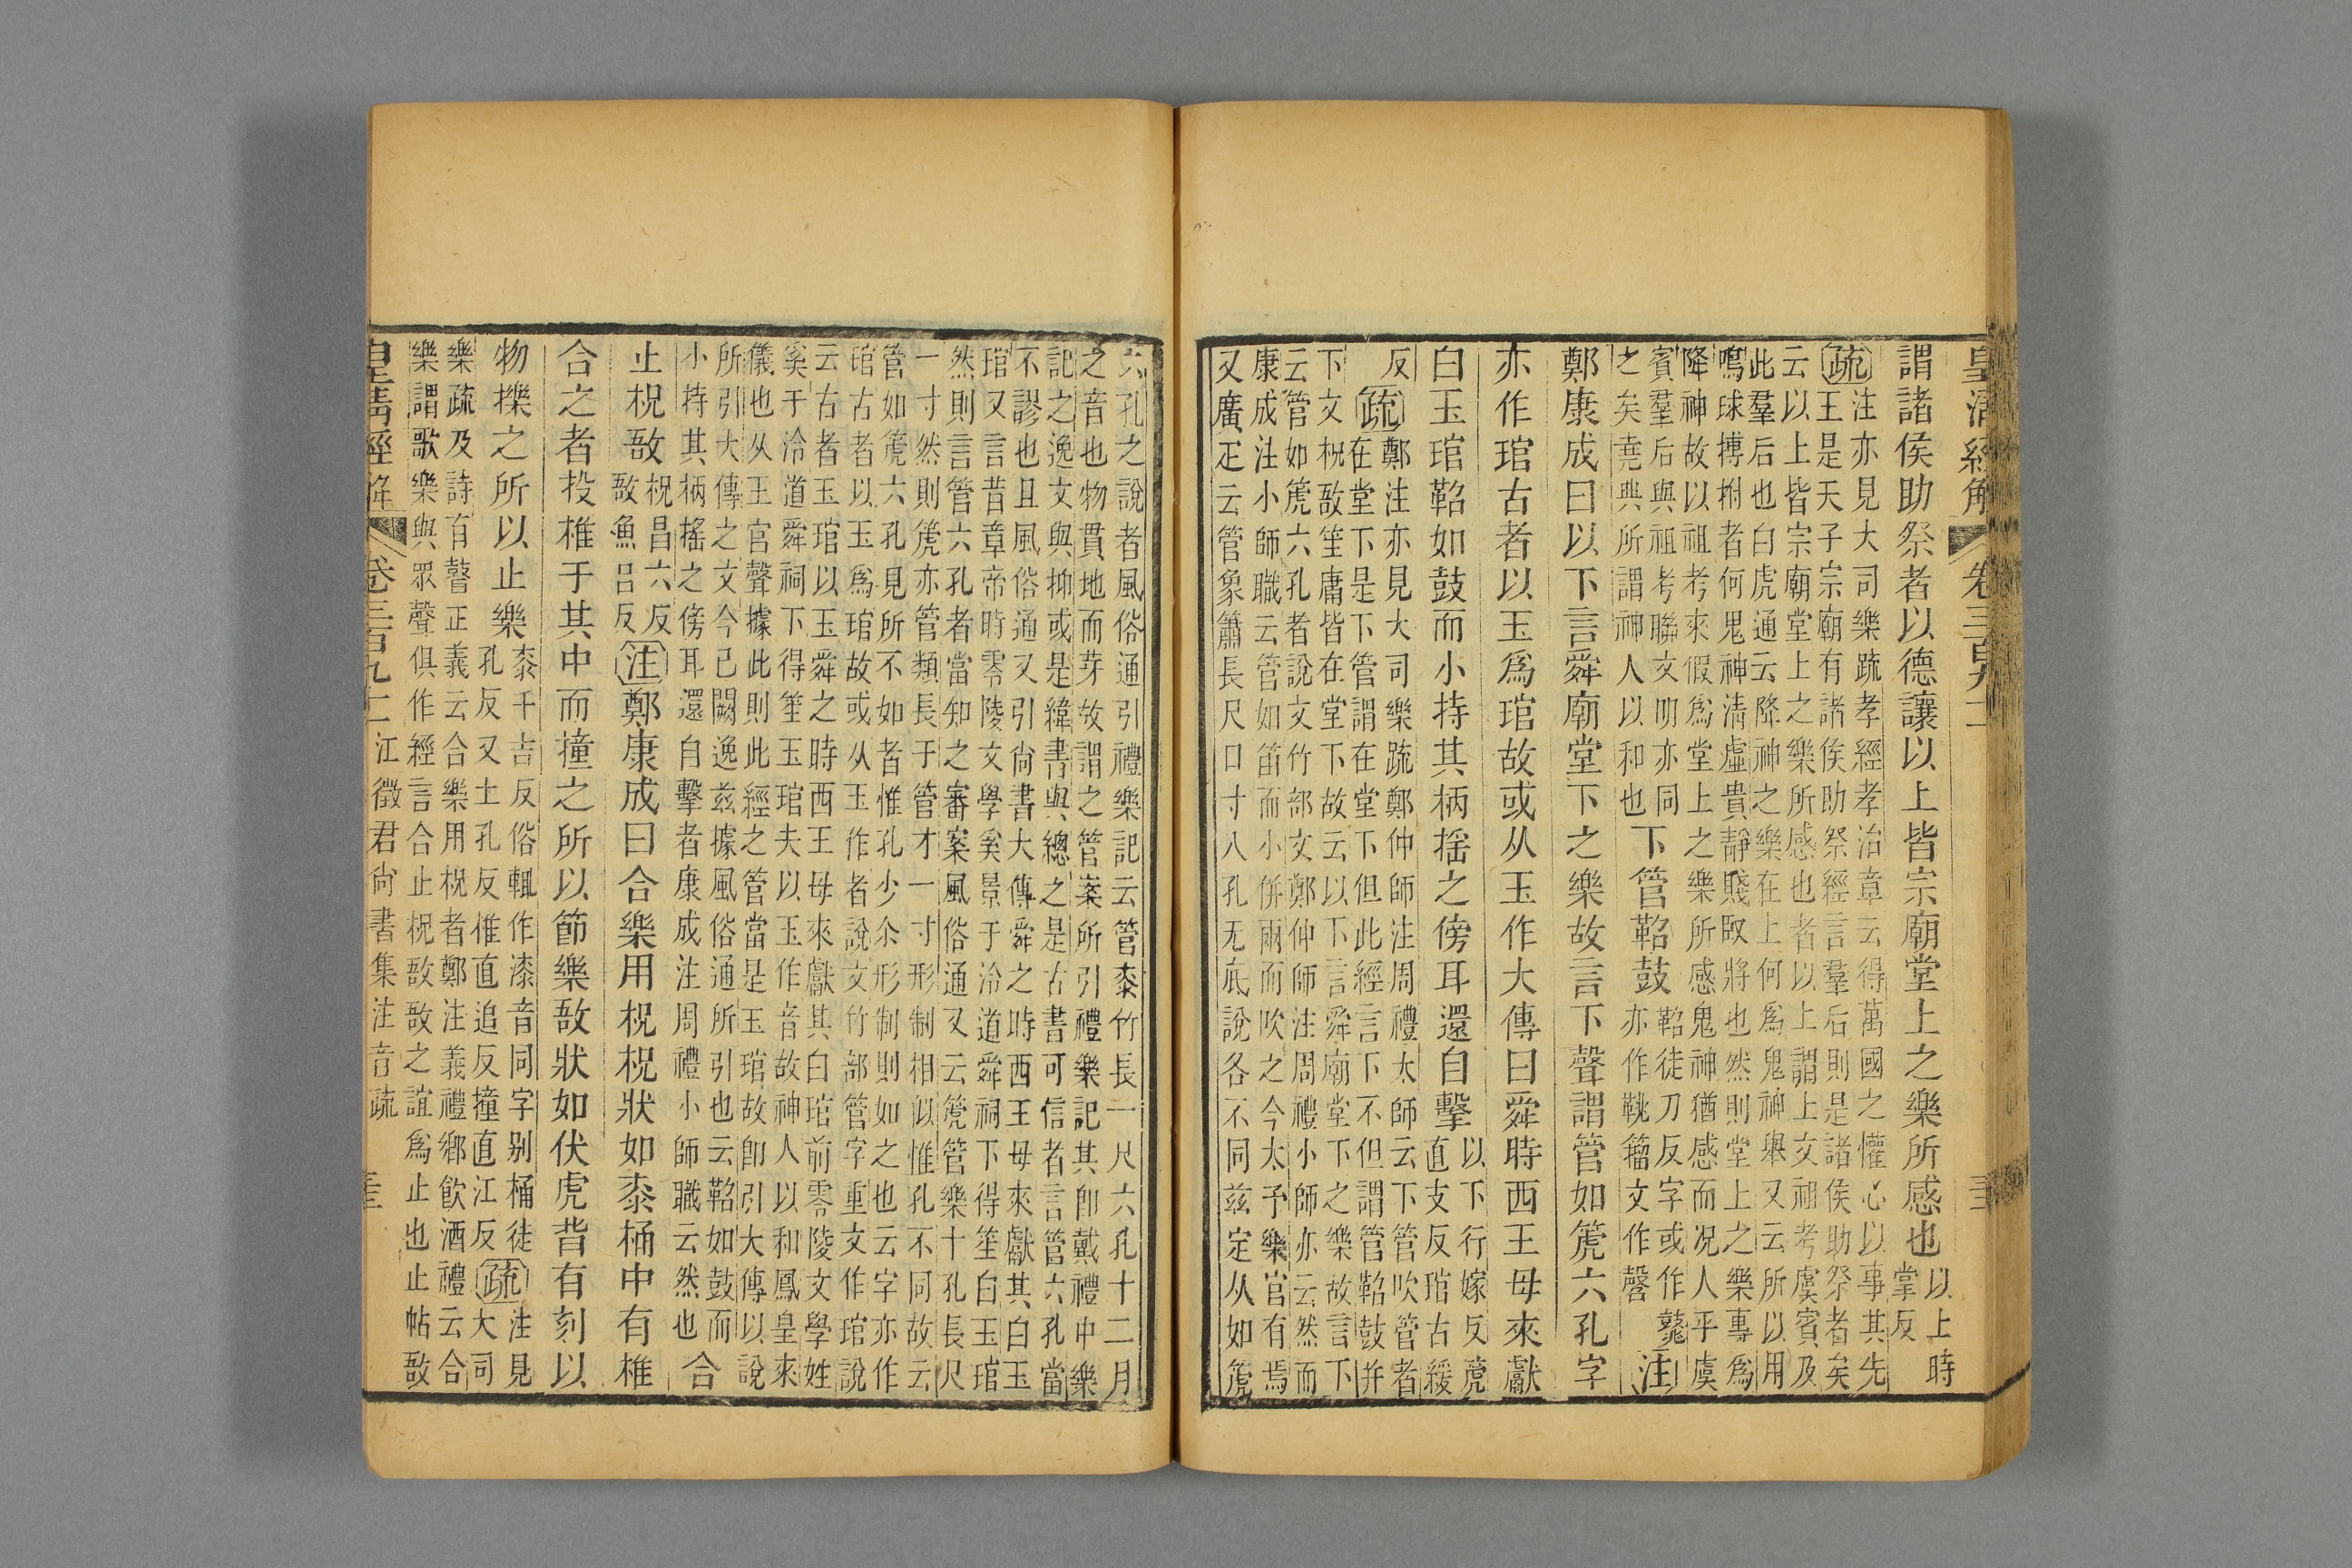 皇清經解 卷三百九十二 三三
謂諸侯助祭者以德讓以上皆宗廟堂上之樂所感也以上時
掌反
疏注亦見大司樂疏孝經孝治章云得萬國之懽心以事其先
王是天子宗廟有諸侯助祭經言羣后則是諸侯助祭者矣
云以上皆宗廟堂上之樂所感也者以上謂上文祖考虞賓及
此羣后也白虎通云降神之樂在上何爲鬼神舉又云所以用
鳴球搏拊者何鬼神清虛貴靜賤取將也然則堂上之樂專爲
降神故以祖考來假爲堂上之樂所感鬼神猶感而况人乎虞
賓羣后與祖考聯文明亦同
之矣堯典所謂神人以和也
下管鞀鼓鞀徒刀反字或作鼗
亦作鞉籀文作磬
注
鄭康成曰以下言舜廟堂下之樂故言下聲謂管如篪六孔字
亦作琯古者以玉爲琯故或从玉作大傳曰舜時西王母來獻
白玉琯鞀如鼓而小持其柄搖之傍耳還自擊以下行嫁反篪
直支反琯古緩
反
疏鄭注亦見大司樂疏鄭仲師注周禮太師云下管吹管者
在堂下是下管謂在堂下但此經言下不但謂管鞀鼓并
下文柷敔笙庸皆在堂下故云以下言舜廟堂下之樂故言下
云管如篪六孔者說文竹部文鄭仲師注周禮小師亦云然而
康成注小師職云管如笛而小併兩而吹之今太予樂官有焉
又廣疋云管象簫長尺口寸八孔无底說各不同兹定从如篪
六孔之說者風俗通引禮樂記云管桼竹長一尺六孔十二月
之音也物貫地而芽故謂之管案所引禮樂記其卽戴禮中樂
記之逸文與抑或是緯書與總之是古書可信者言管六孔當
不謬也且風俗通又引尙書大傳舜之時西王母來獻其白玉
琯又言昔章帝時零陵文學奚景于泠道舜祠下得笙白玉琯
然則言管六孔者當知之審案風俗通又云篪管樂十孔長尺
一寸然則篪亦管類長于管才一寸形制相似惟孔不同故云
管如篪六孔見所不如者惟孔少尒形制則如之也云字亦作
琯古者以玉爲琯故或从玉作者說文竹部管字重文作琯說
云古者玉琯以玉舜之時西王母來獻其白琯前零陵文學姓
奚于泠道舜祠下得笙玉琯夫以玉作音故神人以和鳳皇來
儀也从王官聲據此則此經之管當是玉琯故卽引大傳以說
所引大傳之文今已闕逸兹據風俗通所引也云鞀如鼓而
小持其柄搖之傍耳還自擊者康成注周禮小師職云然也合
止柷敔柷昌六反
敔魚呂反
注鄭康成曰合樂用柷柷狀如桼桶中有椎
合之者投椎于其中而撞之所以節樂敔狀如伏虎背有刻以
物擽之所以止樂桼千吉反俗輒作漆音同字别桶徒
孔反又土孔反椎直追反撞直江反
疏注見大司
樂疏及詩有瞽正義云合樂用柷者鄭注義禮鄉飲酒禮云合
樂謂歌樂與眾聲俱作經言合止柷敔敔之誼爲止也止帖敔
皇清經解 卷三百九十二 江徵君尙書集注音疏 三三